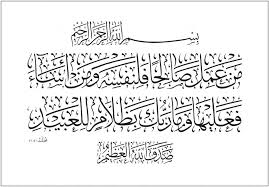 بِسْمِ اللَّهِ الرَّحْمَٰنِ الرَّحِيمِ
مَنْ عَمِلَ صَالِحًا فَلِنَفْسِهِ وَمَنْ أَسَاءَ
فَعَلَيْهَا وَمَا رَبُّكَ بِظَلَّامٍ لِلْعَبِيدِ
صَدَقَ اللَّهُ الْعَظِيمُ